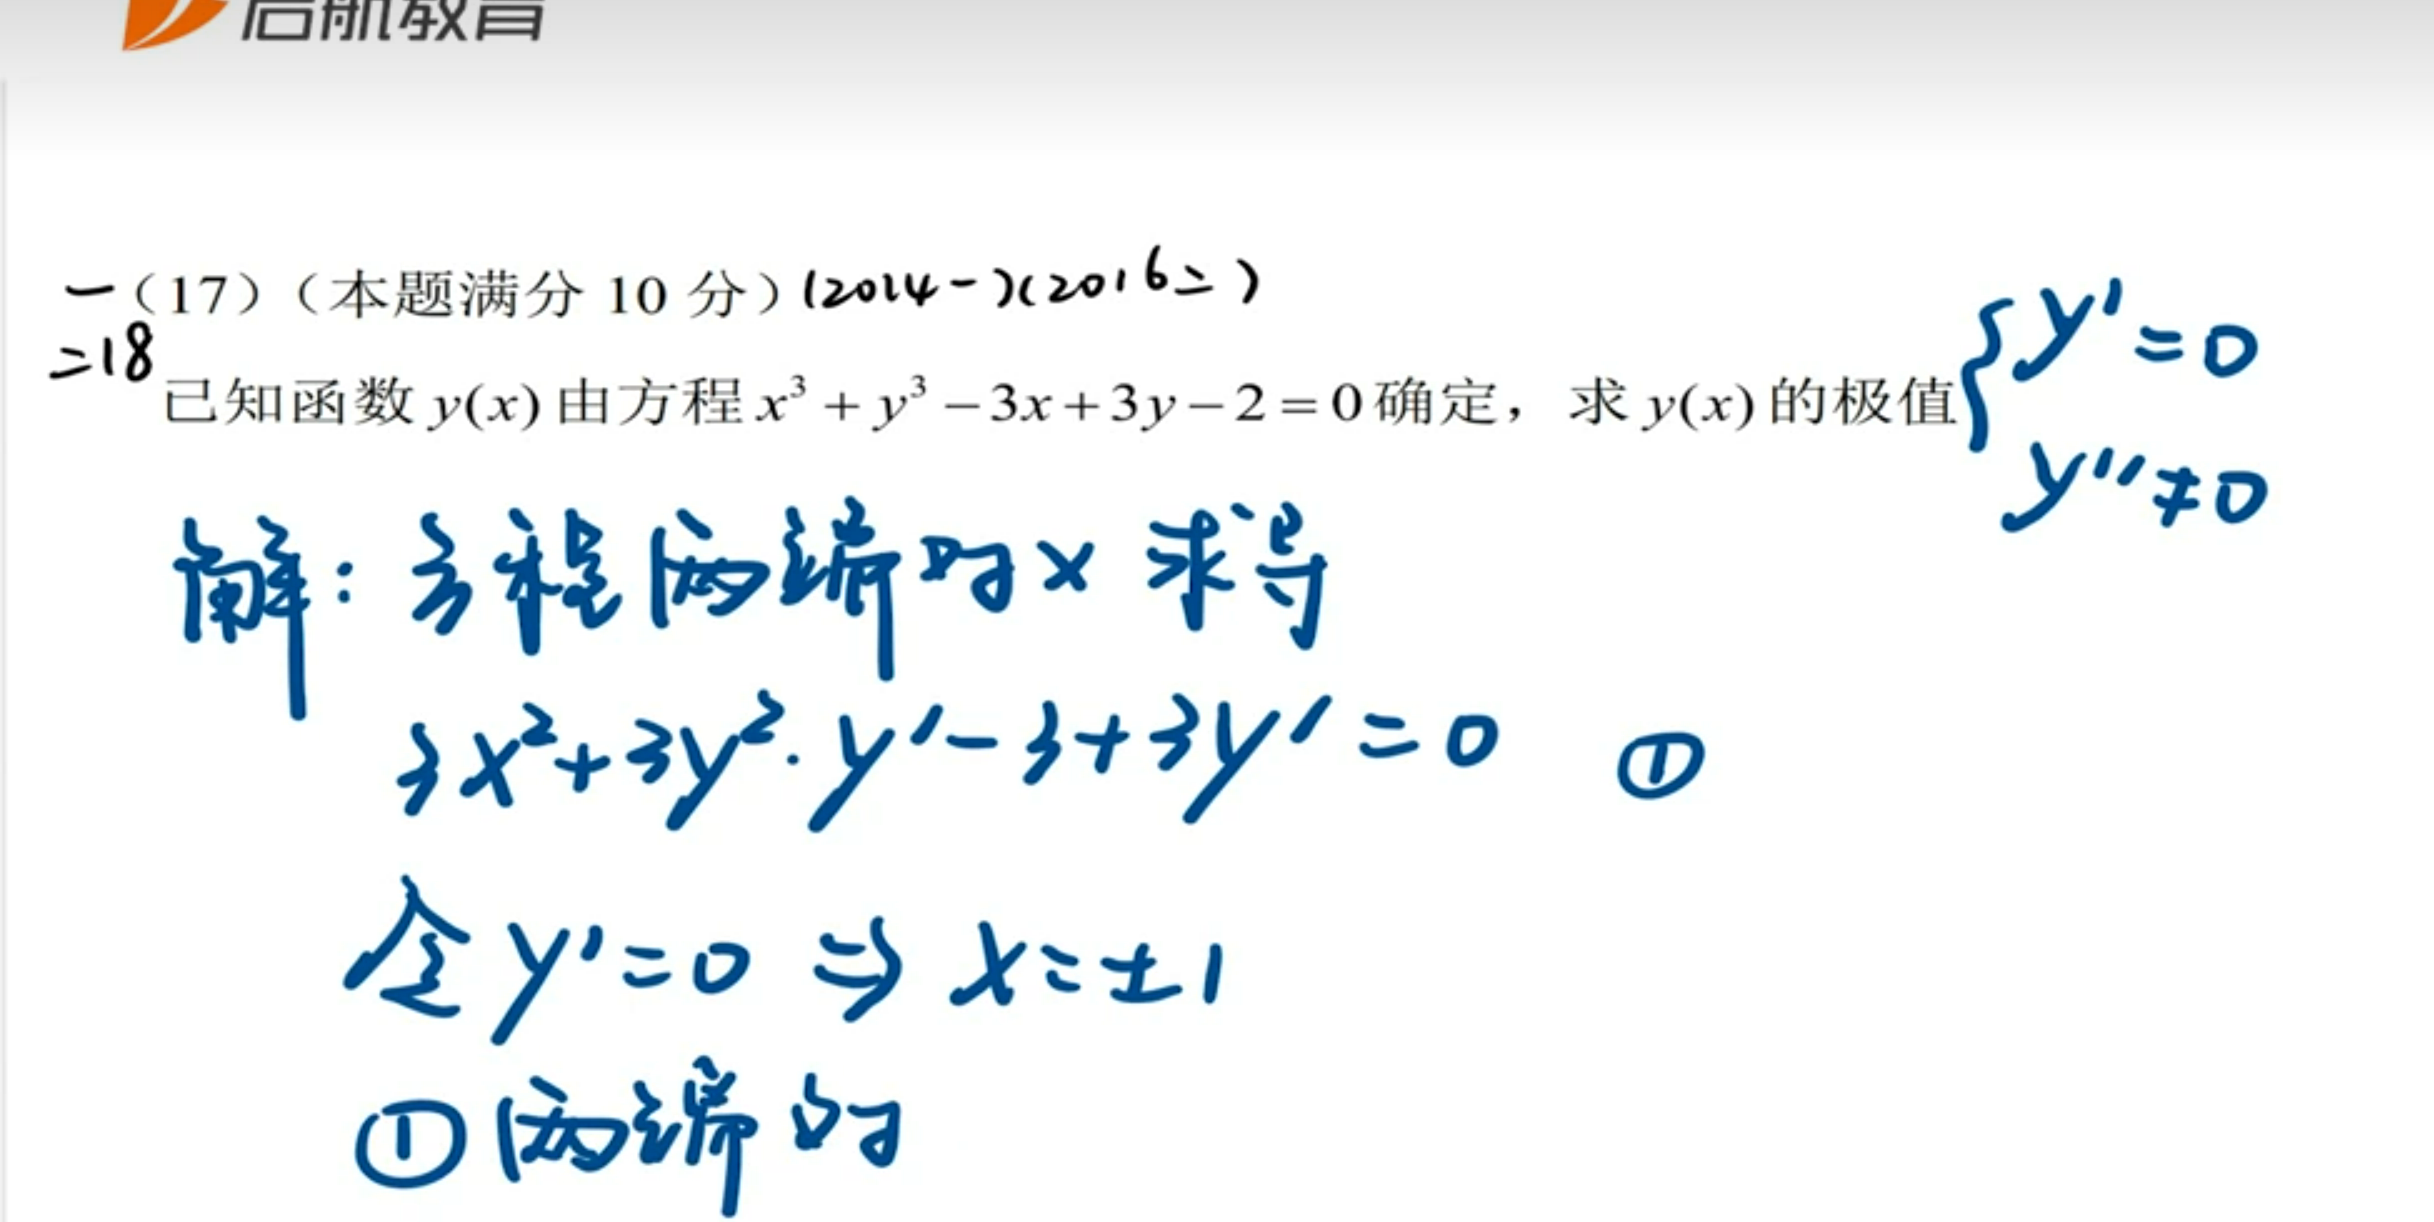 启航教育
一（17）（本题满分 10 分）(2014一)(2016二)
二18
已知函数 y(x) 由方程 x³ + y³ − 3x + 3y − 2 = 0 确定，求 y(x) 的极值
{ y' = 0
y'' ≠ 0
解：方程两端对x求导
3x²+3y²·y'−3+3y'=0 ①
令 y'=0 ⇒ x=±1
①两端对